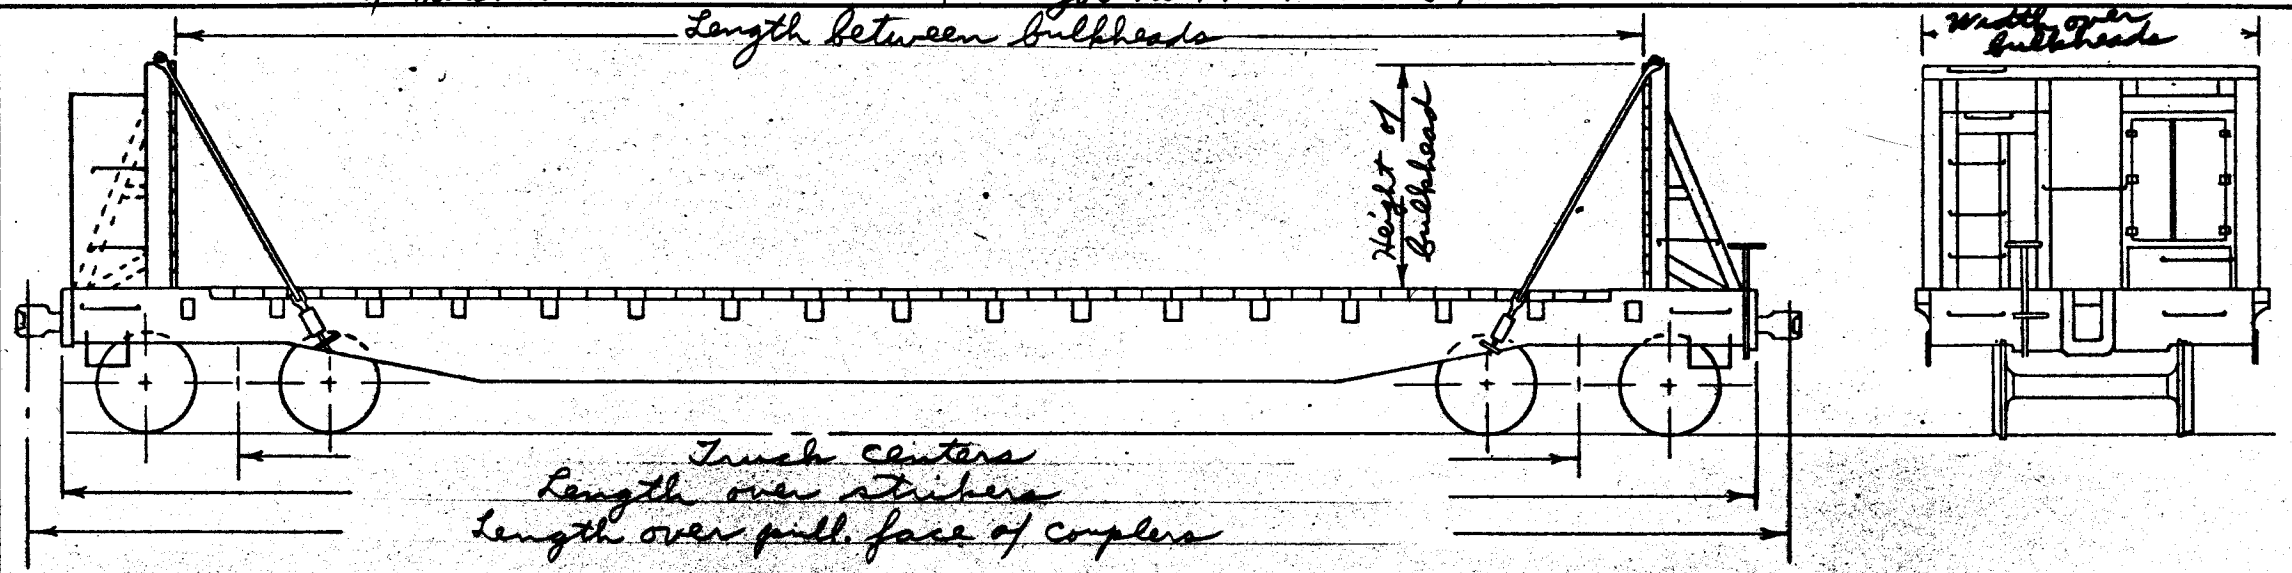 Length between bulkheads
Width over
bulkheads
Height of
bulkhead
Truck centers
Length over strikers
Length over pull. face of couplers